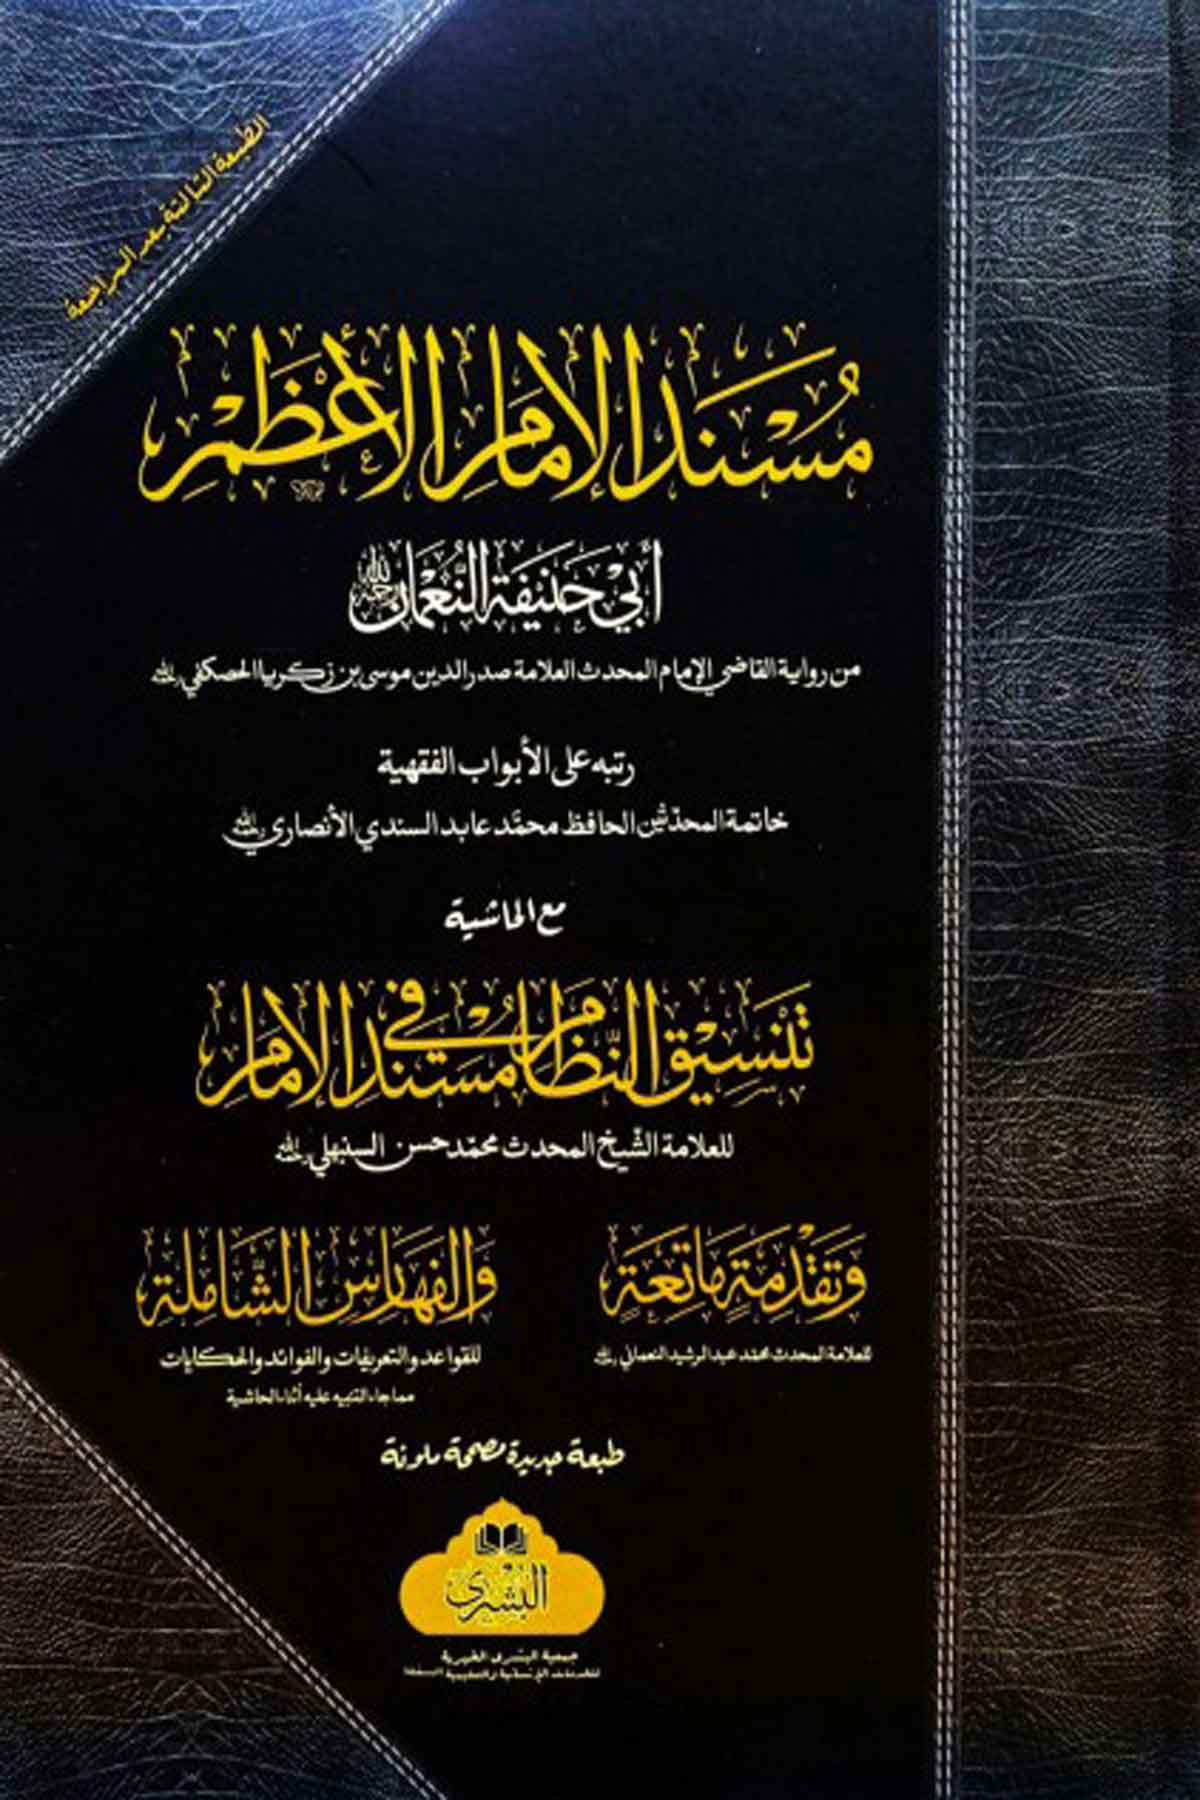 الطبعة الثالثة بعد المراجعة
مُسْنَدُ الإِمَامِ الأَعْظَمِ
أَبِي حَنِيفَةَ النُّعْمَانِ رحمه الله
من رواية القاضي الإمام المحدث العلامة صدر الدين موسى بن زكريا الحصكفي رحمه الله
رتبه على الأبواب الفقهية
خاتمة المحدّثين الحافظ محمَّد عابد السندي الأنصاري رحمه الله
مع الحاشية
تَنْسِيقُ النِّظَامِ فِي مُسْنَدِ الإِمَامِ
للعلامة الشَّيخ المحدث محمّد حسن السنبهلي رحمه الله
وَتَقْدِمَةٍ مَاتِعَةٍ
للعلامة المحدث محمّد عبد الرشيد النعماني رحمه الله
وَالفَهَارِسِ الشَّامِلَةِ
للقواعد والتعريفات والفوائد والحكايات
مما جاء التنبيه عليه أثناء الحاشية
طبعة جديدة مصححة ملونة
البُشرى
جمعية البشرى الخيرية
للخدمات الإنسانية والتعليمية